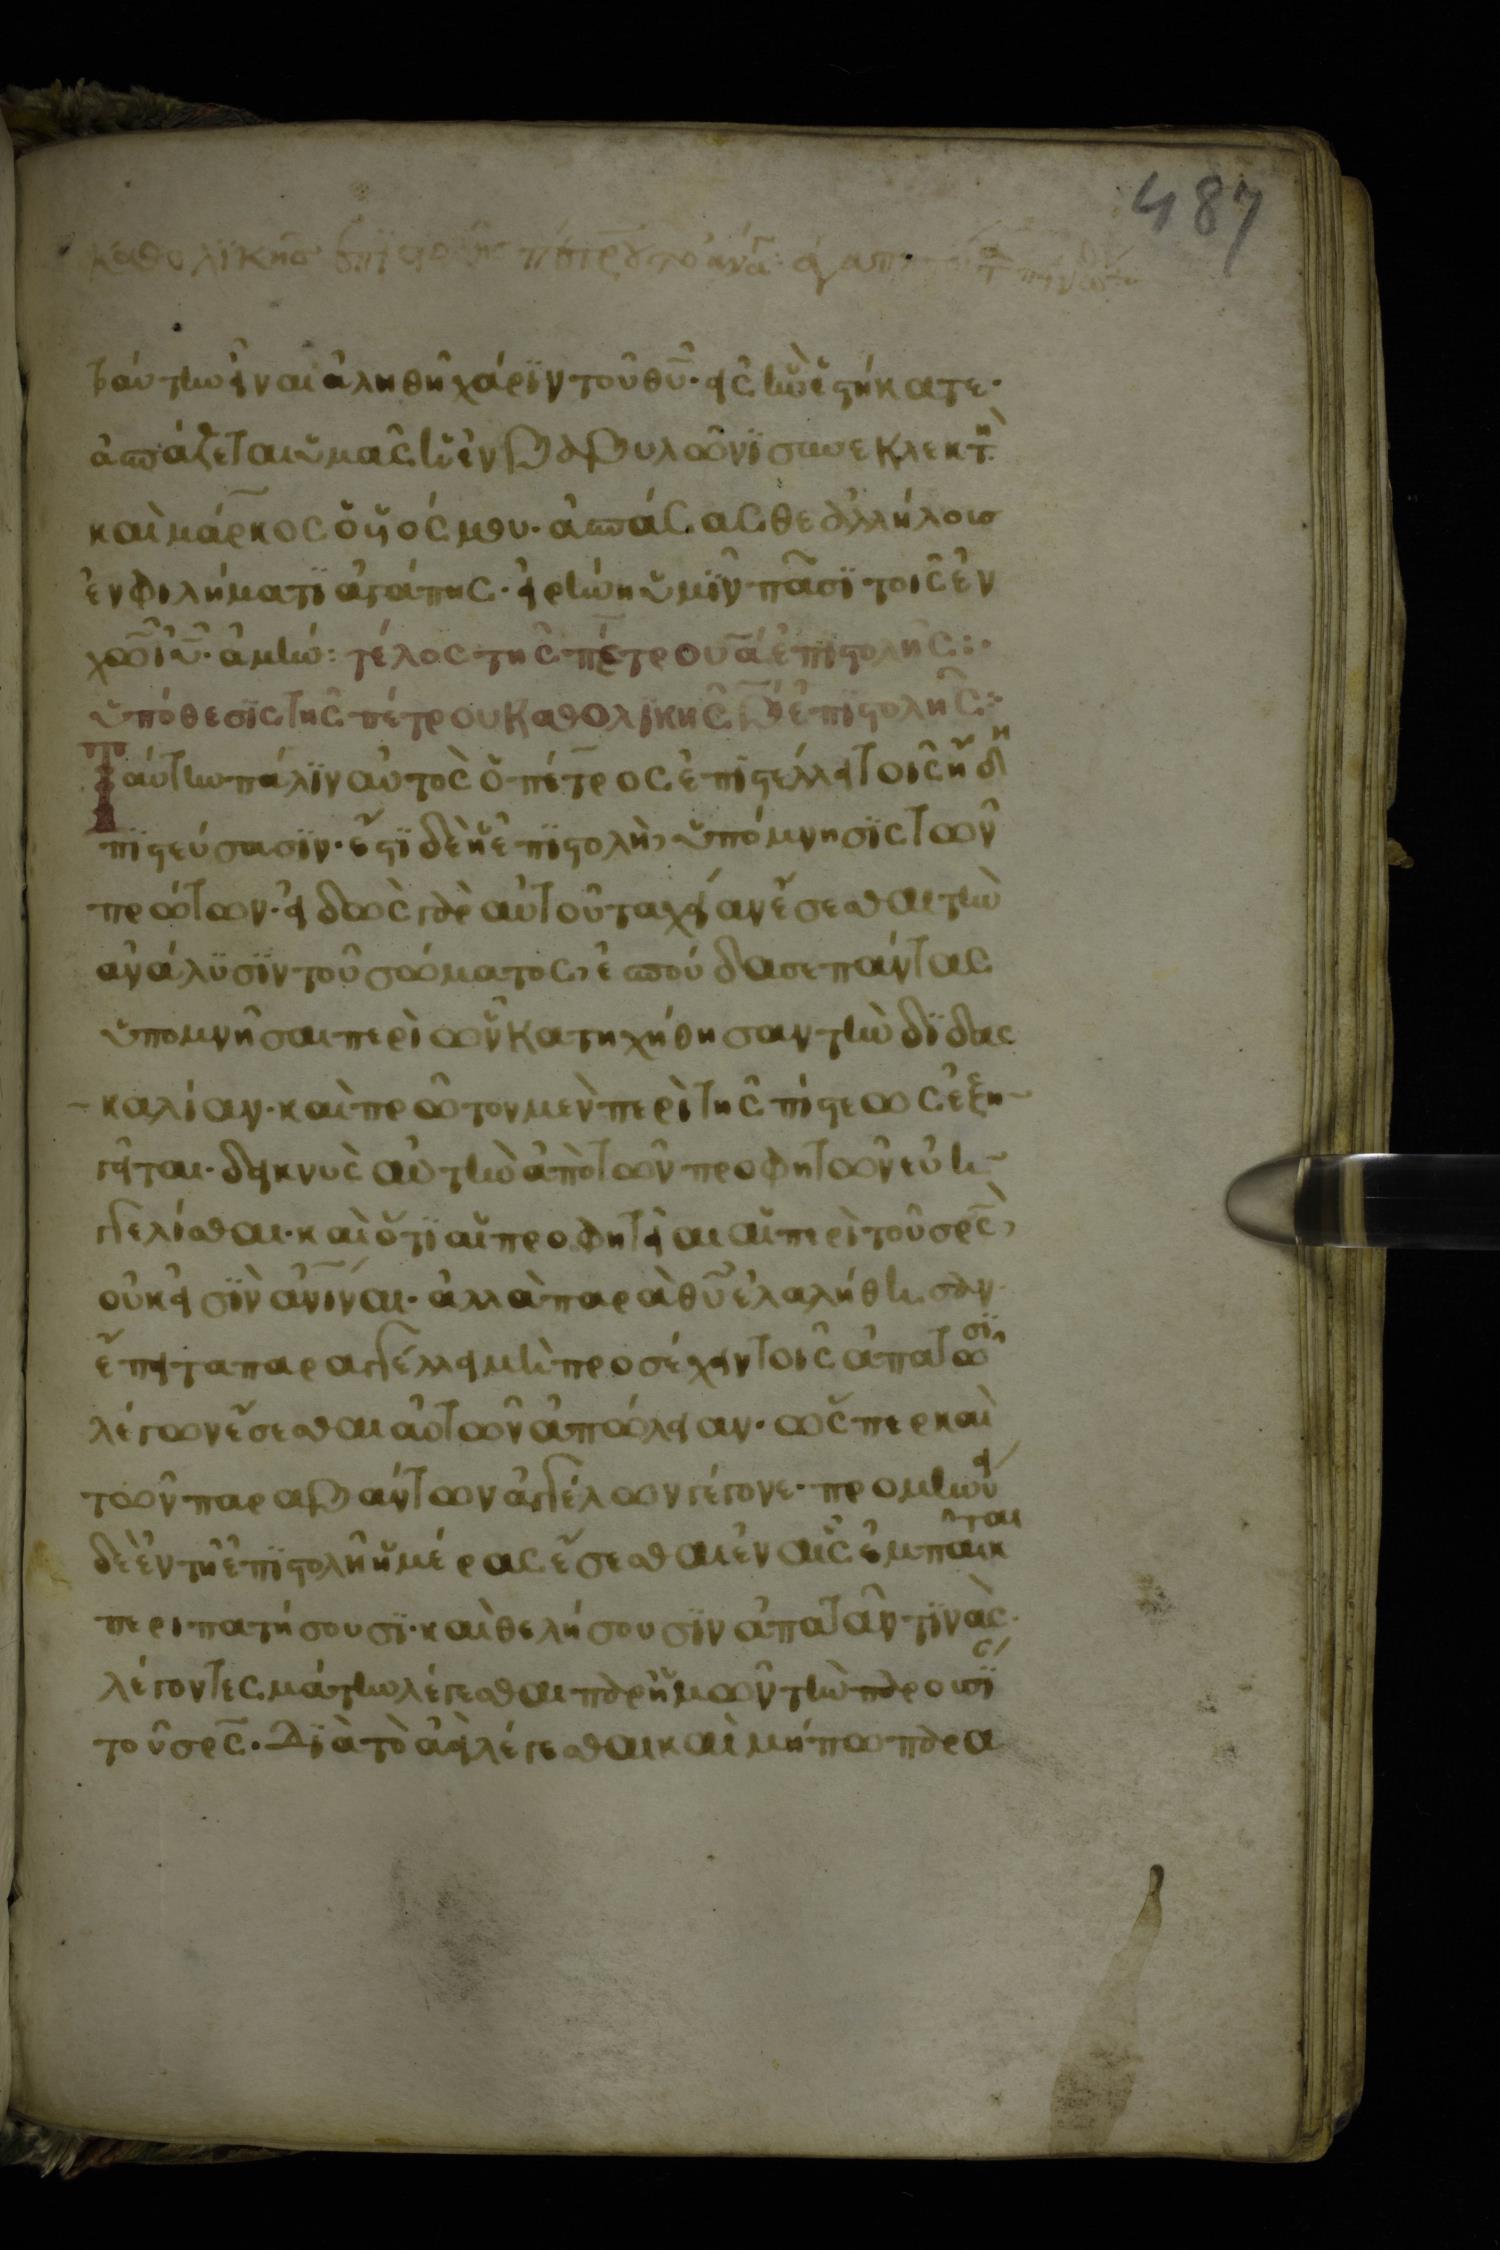 487
καθολϊκῆσ ἐπϊστολῆς πέτρου το ἀνα
ταύτην εἶναι ἀληθῆ χάρϊν τοῦ θῡ· εἰς ἣν ἑστήκατε·
ἀσπάζεται ὑμᾶς ἡ ἐν βαβυλῶνϊ συνεκλεκτὴ
καὶ μάρκος ὁ υἱός μου· ἀσπάσασθε ἀλλήλοισ
ἐν φιλήματϊ ἀγάπης· εἰρήνη ὑμῖν πᾶσϊ τοῖς ἐν
χω̄ ἰῡ· ἀμήν: τέλος τῆς πέτρου ᾱ ἐπϊστολῆς:·
ὑπόθεσϊς τῆς πέτρου καθολϊκῆς β̄ ἐπϊστολῆς:·
Ταύτην πάλϊν αὐτὸς ὁ πέτρος ἐπϊστέλλει τοῖς ἤδη
πϊστεύσασϊν· ἔστϊ δὲ ἡ ἐπϊστολὴ, ὑπόμνησϊς τῶν
πρώτων· εἰδὼς γὰρ αὐτοῦ ταχεῖαν ἔσεσθαι τὴν
ἀνάλϋσϊν τοῦ σώματος, ἐσπούδασε πάντας
ὑπομνῆσαι περὶ ὧν κατηχήθησαν τὴν δϊδας
καλίαν· καὶ πρῶτον μὲν περὶ τῆς πίστεως ἐξη
γεῖται· δεικνὺς αὐτὴν ἀπὸ τῶν προφητῶν εὐη
γγελίσθαι· καὶ ὅτϊ αἱ προφητεῖαι αἱ περὶ τοῦ σρ̄ς,
οὐκ εἰσϊν ἀν̄ιναι· ἀλλὰ παρὰ θῡ ἐλαλήθησαν·
ἔπειτα παραγγέλλει μὴ προσέχειν τοῖς ἀπατῶσϊ,
λέγων ἔσεσθαι αὐτῶν ἀπώλειαν· ὥσπερ καὶ
τῶν παραβάντων ἀγγέλων γέγονε· προμηνύει
δὲ ἐν τῇ ἐπϊστολῇ ἡμέρας ἔσεσθαι ἐν αἷς ἐμπαῖκται
περιπατήσουσϊ· καὶ θελήσουσϊν ἀπατᾶν τϊνὰς·
λέγοντες μάτην λέγεσθαι παρ ἡμῶν τὴν παρουσίϊ
τοῦ σρ̄ς· Διὰ τὸ ἀεὶ λέγεσθαι καὶ μήπω παρα